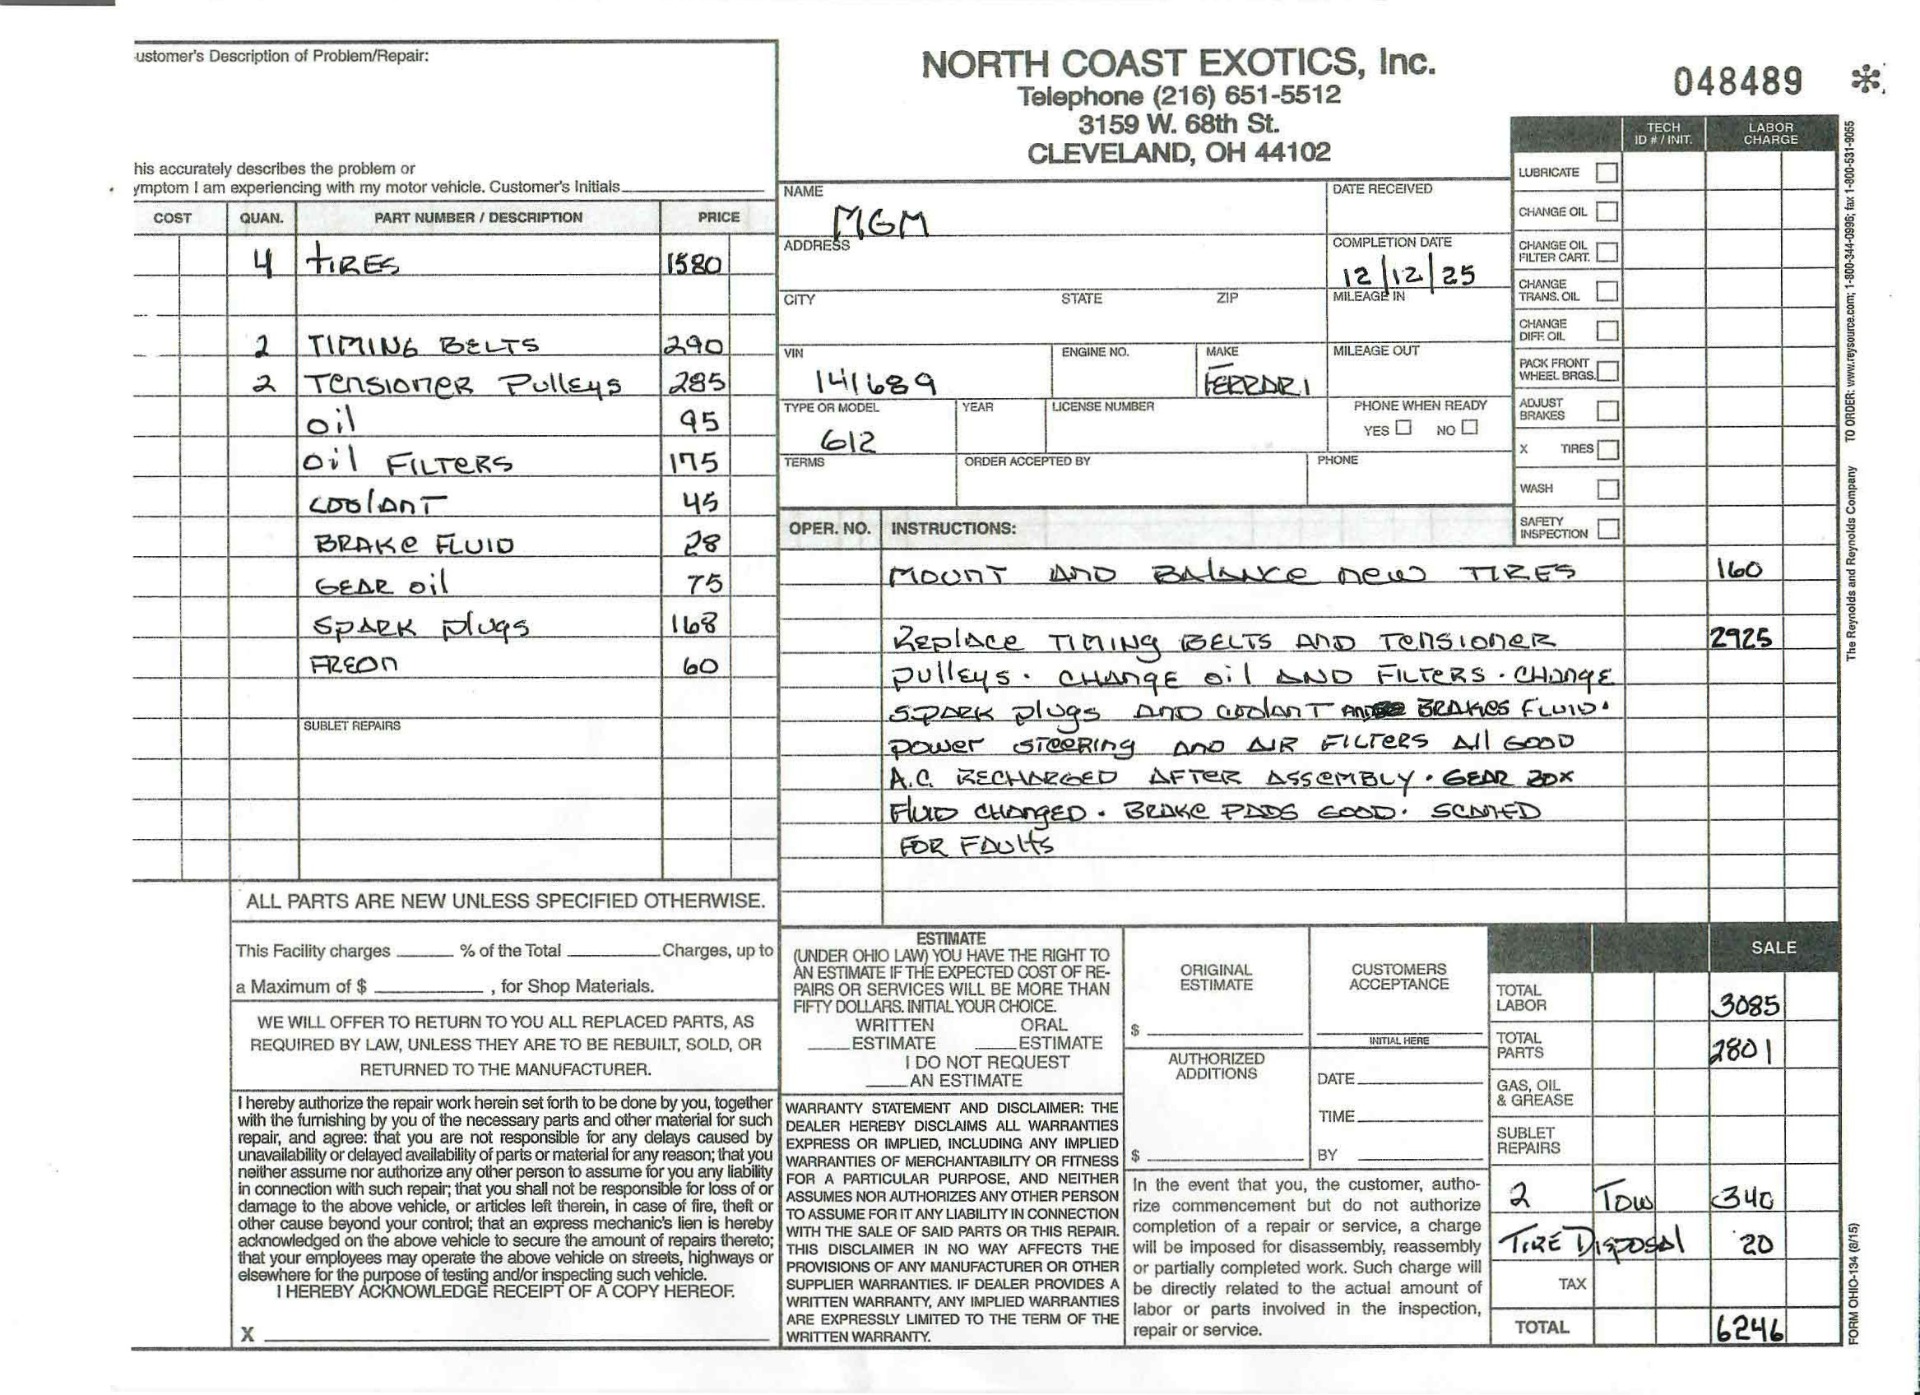 ustomer's Description of Problem/Repair:
his accurately describes the problem or
ymptom I am experiencing with my motor vehicle. Customer's Initials
COST QUAN. PART NUMBER / DESCRIPTION PRICE
4 TIRES 1580
2 TIMING BELTS 290
2 TENSIONER PULLEYS 285
OIL 95
OIL FILTERS 175
COOLANT 45
BRAKE FLUID 28
GEAR OIL 75
SPARK PLUGS 168
FREON 60
SUBLET REPAIRS
ALL PARTS ARE NEW UNLESS SPECIFIED OTHERWISE.
This Facility charges ______ % of the Total ______ Charges, up to
a Maximum of $ ______ , for Shop Materials.
WE WILL OFFER TO RETURN TO YOU ALL REPLACED PARTS, AS
REQUIRED BY LAW, UNLESS THEY ARE TO BE REBUILT, SOLD, OR
RETURNED TO THE MANUFACTURER.
I hereby authorize the repair work herein set forth to be done by you, together
with the furnishing by you of the necessary parts and other material for such
repair, and agree: that you are not responsible for any delays caused by
unavailability or delayed availability of parts or material for any reason; that you
neither assume nor authorize any other person to assume for you any liability
in connection with such repair; that you shall not be responsible for loss of or
damage to the above vehicle, or articles left therein, in case of fire, theft or
other cause beyond your control; that an express mechanic's lien is hereby
acknowledged on the above vehicle to secure the amount of repairs thereto;
that your employees may operate the above vehicle on streets, highways or
elsewhere for the purpose of testing and/or inspecting such vehicle.
I HEREBY ACKNOWLEDGE RECEIPT OF A COPY HEREOF.
X
NORTH COAST EXOTICS, Inc.
Telephone (216) 651-5512
3159 W. 68th St.
CLEVELAND, OH 44102
048489 *
NAME DATE RECEIVED
MGM
ADDRESS COMPLETION DATE
12/12/25
CITY STATE ZIP MILEAGE IN
VIN ENGINE NO. MAKE MILEAGE OUT
141689 FERRARI
TYPE OR MODEL YEAR LICENSE NUMBER PHONE WHEN READY
612 YES NO
TERMS ORDER ACCEPTED BY PHONE
TECH ID # / INIT. LABOR CHARGE
LUBRICATE
CHANGE OIL
CHANGE OIL
FILTER CART.
CHANGE
TRANS. OIL
CHANGE
DIFF. OIL
PACK FRONT
WHEEL BRGS.
ADJUST
BRAKES
X TIRES
WASH
SAFETY
INSPECTION
OPER. NO. INSTRUCTIONS:
MOUNT AND BALANCE NEW TIRES 160
REPLACE TIMING BELTS AND TENSIONER 2925
PULLEYS. CHANGE OIL AND FILTERS. CHANGE
SPARK PLUGS AND COOLANT AND BRAKES FLUID.
POWER STEERING AND AIR FILTERS ALL GOOD
A.C. RECHARGED AFTER ASSEMBLY. GEAR BOX
FLUID CHANGED. BRAKE PADS GOOD. SCANNED
FOR FAULTS
ESTIMATE
(UNDER OHIO LAW) YOU HAVE THE RIGHT TO
AN ESTIMATE IF THE EXPECTED COST OF RE-
PAIRS OR SERVICES WILL BE MORE THAN
FIFTY DOLLARS. INITIAL YOUR CHOICE.
WRITTEN ORAL
ESTIMATE ESTIMATE
I DO NOT REQUEST
AN ESTIMATE
WARRANTY STATEMENT AND DISCLAIMER: THE
DEALER HEREBY DISCLAIMS ALL WARRANTIES
EXPRESS OR IMPLIED, INCLUDING ANY IMPLIED
WARRANTIES OF MERCHANTABILITY OR FITNESS
FOR A PARTICULAR PURPOSE, AND NEITHER
ASSUMES NOR AUTHORIZES ANY OTHER PERSON
TO ASSUME FOR IT ANY LIABILITY IN CONNECTION
WITH THE SALE OF SAID PARTS OR THIS REPAIR.
THIS DISCLAIMER IN NO WAY AFFECTS THE
PROVISIONS OF ANY MANUFACTURER OR OTHER
SUPPLIER WARRANTIES. IF DEALER PROVIDES A
WRITTEN WARRANTY, ANY IMPLIED WARRANTIES
ARE EXPRESSLY LIMITED TO THE TERM OF THE
WRITTEN WARRANTY.
ORIGINAL
ESTIMATE
$
AUTHORIZED
ADDITIONS
$
CUSTOMERS
ACCEPTANCE
INITIAL HERE
DATE
TIME
BY
In the event that you, the customer, autho-
rize commencement but do not authorize
completion of a repair or service, a charge
will be imposed for disassembly, reassembly
or partially completed work. Such charge will
be directly related to the actual amount of
labor or parts involved in the inspection,
repair or service.
SALE
TOTAL LABOR 3085
TOTAL PARTS 2801
GAS, OIL & GREASE
SUBLET REPAIRS
2 TOW 340
TIRE DISPOSAL 20
TAX
TOTAL 6246
The Reynolds and Reynolds Company TO ORDER: www.reysource.com; 1-800-344-0996; fax 1-800-531-9055
FORM OHIO-134 (8/15)